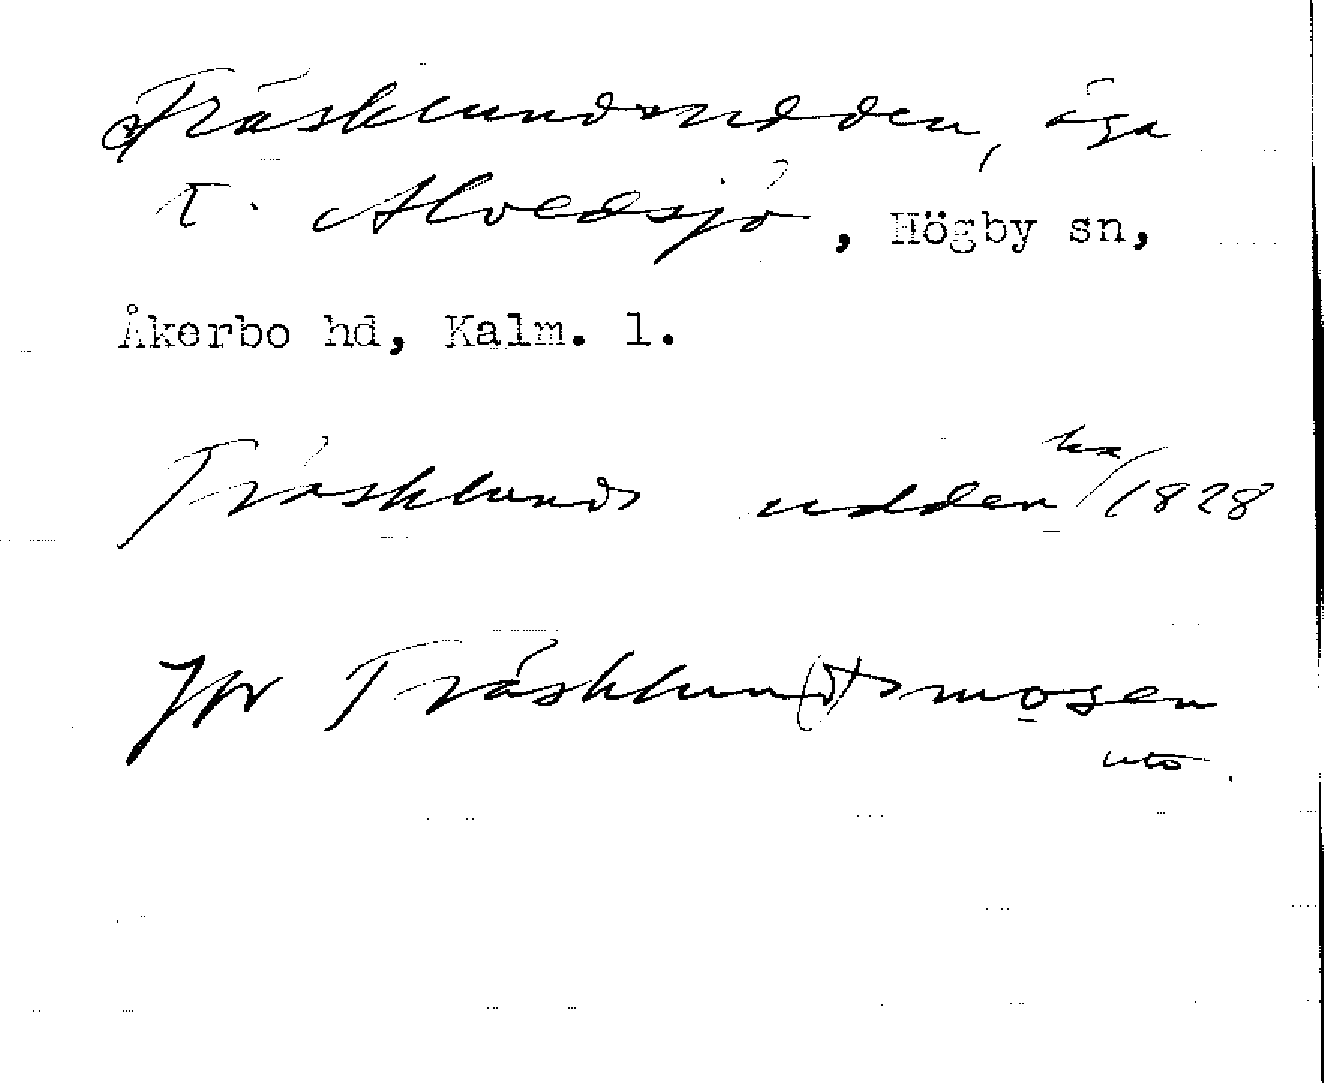 Träsklundsudden, äga
t. Alvedsjö, Högby sn,
Åkerbo hd, Kalm. l.
Träsklunds udden ha/1828
Jfr Träsklun(d)tsmosen
uto.